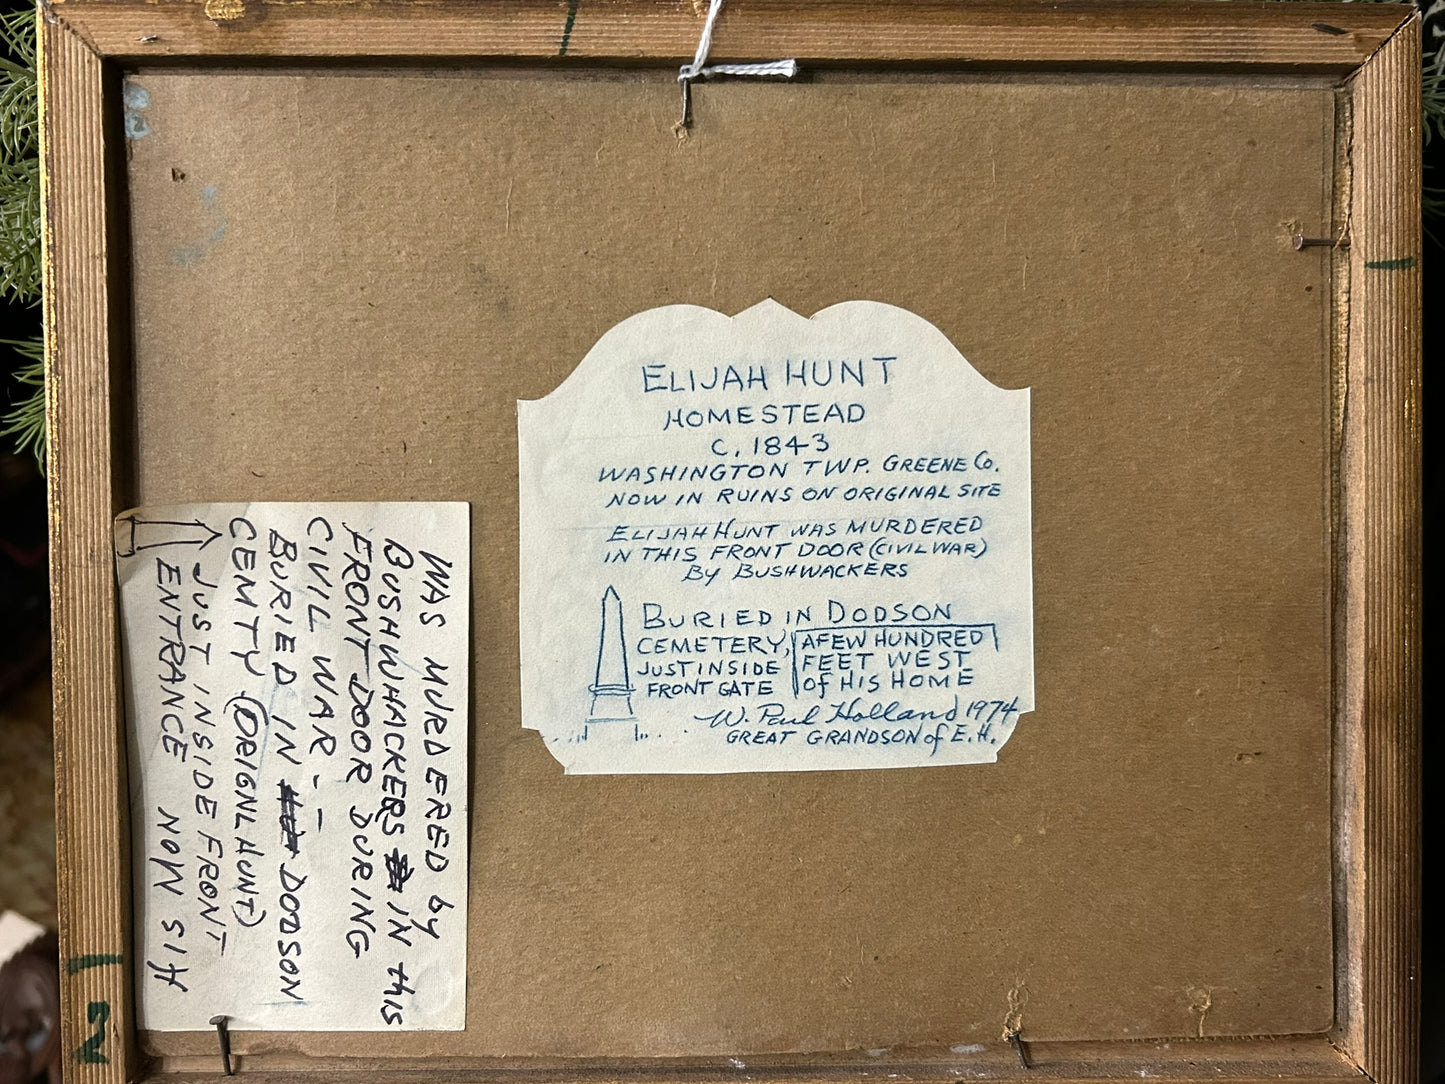 ELIJAH HUNT
HOMESTEAD
C. 1843
WASHINGTON TWP. GREENE CO.
NOW IN RUINS ON ORIGINAL SITE
ELIJAH HUNT WAS MURDERED
IN THIS FRONT DOOR (CIVIL WAR)
By BUSHWACKERS
BURIED IN DODSON
CEMETERY,
JUST INSIDE
FRONT GATE
A FEW HUNDRED
FEET WEST
Of HIS HOME
W. Paul Holland 1974
GREAT GRANDSON of E.H.
WAS MURDERED by
BUSHWHACKERS IN this
FRONT DOOR DURING
CIVIL WAR - -
BURIED IN DODSON
CEMTY (ORIGNL HUNT)
JUST INSIDE FRONT
ENTRANCE
2